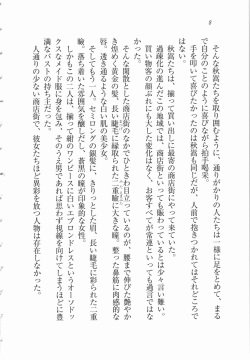 8
そんな秋嵩たちを取り囲むように、通りがかりの人たちは一様に足をとめて、まる
で自分のことのように喜びながら拍手喝采。
手を叩いて喜びたかったのは秋嵩も同じだが、人前で抱きつかれてはそれどころで
はない。
秋嵩たちは、揃って買い出しに最寄の商店街を訪れていた。
過疎化の進んだこの地域では、商店街といっても賑わっているとは少々言い難い。
買い物客の顔ぶれにも大した変化はなく、お客すべてが常連といっても過言ではな
さそうだ。
そんな閑散とした商店街のなかでひときわ目立っているのが、腰まで伸びた艶やか
き煌めく黄金の髪、長い睫毛に縁取られた二重瞼に大きな瞳、整った鼻筋に肉感的な
唇。透き通るように白い肌の美少女。
そしてもう一人、セミロングの銀髪に、きりっとした眉、長い睫毛に彩られた二重
瞼。大人びた雰囲気を醸しだす、蒼黒の瞳が印象的な女性。
しかもこの二人は、揃って紺のワンピースに白いエプロンドレスというオーソドッ
クスなメイド服に身を包んでいて、そのうえ男であれば思わず視線を向けてしまうほどに豊
満なバストの持ち主だった。
人通りの少ない商店街で、彼女たちほど異彩を放つ人物は存在しない。